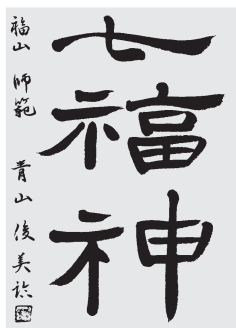 七福神
福山 師範 青山 俊美